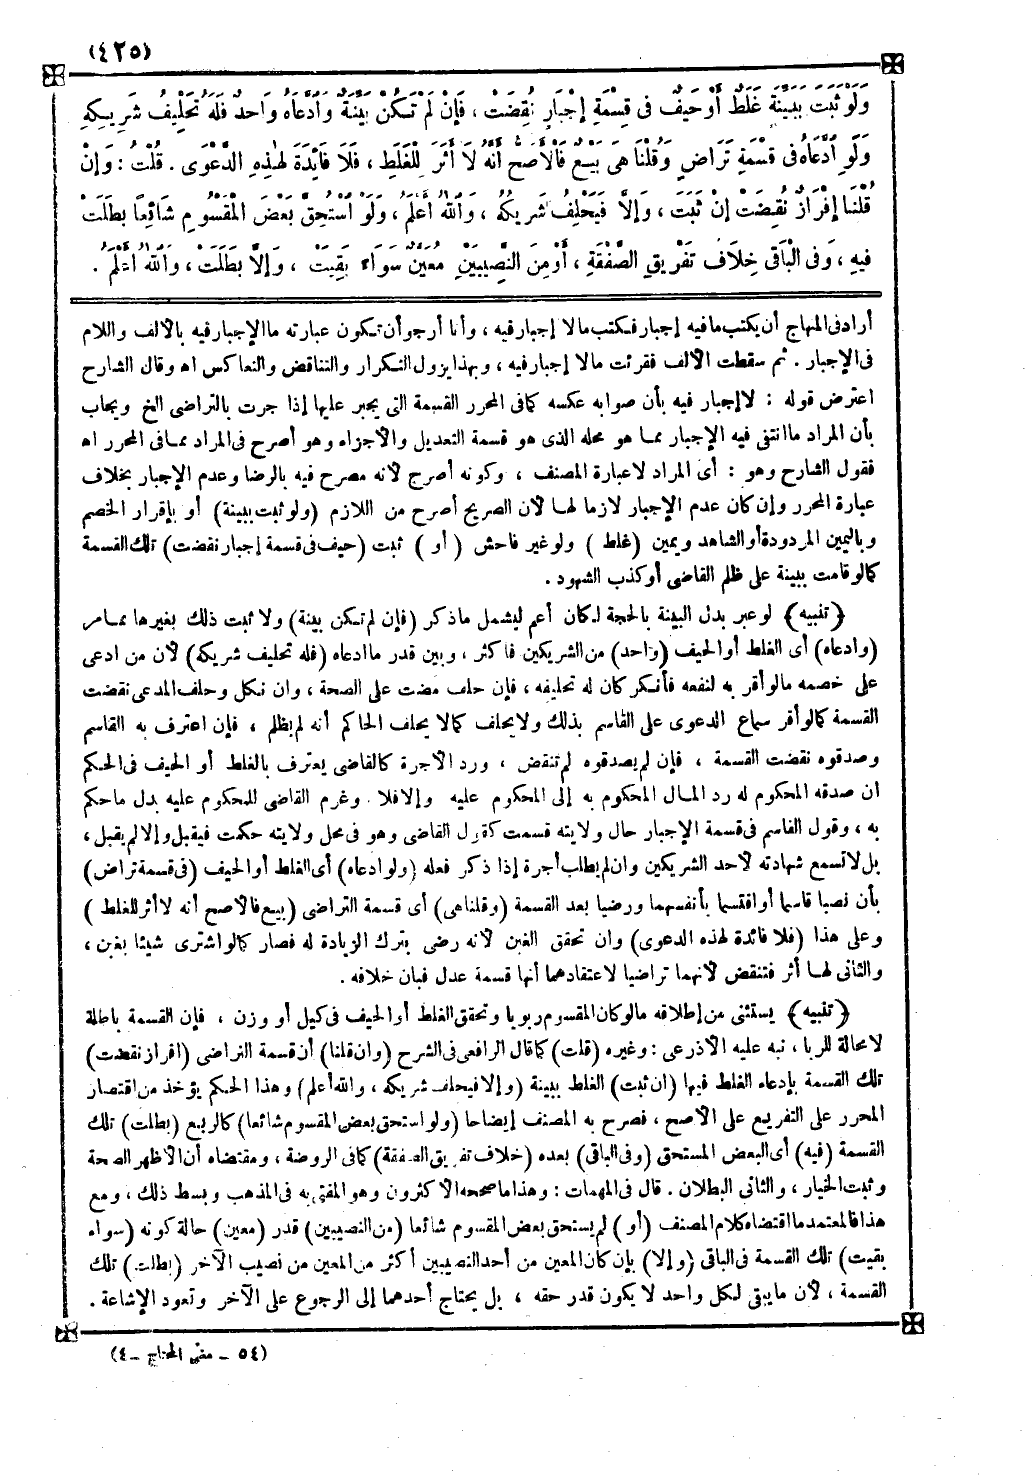 (٤٢٥)
وَلَوْ ثَبَتَ بِبَيِّنَةٍ غَلَطٌ أَوْ حَيْفٌ فى قِسْمَةِ إِجْبَارٍ نُقِضَتْ ، فَإِنْ لَمْ تَكُنْ بَيِّنَةٌ وَادَّعَاهُ وَاحِدٌ فَلَهُ تَحْلِيفُ شَرِيكِهِ
وَلَوِ ادَّعَاهُ فى قِسْمَةِ تَرَاضٍ وَقُلْنَا هِىَ بَيْعٌ فَالْأَصَحُّ أَنَّهُ لَا أَثَرَ لِلْغَلَطِ ، فَلَا فَائِدَةَ لِهٰذِهِ الدَّعْوَى . قُلْتُ : وَإِنْ
قُلْنَا إِفْرَازٌ نُقِضَتْ إِنْ ثَبَتَ ، وَإِلَّا فَيَحْلِفُ شَرِيكُهُ ، وَاللهُ أَعْلَمُ ، وَلَوْ اسْتُحِقَّ بَعْضُ الْمَقْسُومِ شَائِعًا بَطَلَتْ
فِيهِ ، وَفى الْبَاقِى خِلَافُ تَفْرِيقِ الصَّفْقَةِ ، أَوْ مِنَ النَّصِيبَيْنِ مُعَيَّنٌ سَوَاءٌ بَقِيَتْ ، وَإِلَّا بَطَلَتْ ، وَاللهُ أَعْلَمُ .
أراد فى المنهاج أن يكتب مافيه إجبار فكتب مالا إجبار فيه ، وأنا أرجو أن تكون عبارته ما الإجبار فيه بالألف واللام
فى الإجبار . ثم سقطت الألف فقرئت مالا إجبار فيه ، وبهذا يزول التكرار والتناقض والتعاكس اه وقال الشارح
اعترض قوله : لا إجبار فيه بأن صوابه عكسه كما فى المحرر القسمة التى يجبر عليها إذا جرت بالتراضى الخ ويجاب
بأن المراد ما انتفى فيه الإجبار مما هو محله الذى هو قسمة التعديل والأجزاء وهو أصرح فى المراد مما فى المحرر اه
فقول الشارح وهو : أى المراد لا عبارة المصنف ، وكونه أصرح لأنه مصرح فيه بالرضا وعدم الإجبار بخلاف
عبارة المحرر وإن كان عدم الإجبار لازما لها لأن الصريح أصرح من اللازم (ولو ثبت ببينة) أو بإقرار الخصم
وباليمين المردودة أو الشاهد ويمين (غلط) ولو غير فاحش (أو) ثبت (حيف فى قسمة إجبار نقضت) تلك القسمة
كما لو قامت بينة على ظلم القاضى أو كذب الشهود .
﴿تنبيه﴾ لو عبر بدل البينة بالحجة لكان أعم ليشمل ماذكر (فإن لم تكن بينة) ولا ثبت ذلك بغيرها مما مر
(وادعاه) أى الغلط أو الحيف (واحد) من الشريكين فأكثر ، وبين قدر ما ادعاه (فله تحليف شريكه) لأن من ادعى
على خصمه مالو أقر به لنفعه فأنكر كان له تحليفه ، فإن حلف مضت على الصحة ، وان نكل وحلف المدعى نقضت
القسمة كما لو أقر سماع الدعوى على القاسم بذلك ولا يحلف كما لا يحلف الحاكم أنه لم يظلم ، فإن اعترف به القاسم
وصدقوه نقضت القسمة ، فإن لم يصدقوه لم تنقض ، ورد الأجرة كالقاضى يعترف بالغلط أو الحيف فى الحكم
ان صدقه المحكوم له رد المال المحكوم به إلى المحكوم عليه وإلا فلا وغرم القاضى للمحكوم عليه بدل ماحكم
به ، وقول القاسم فى قسمة الإجبار حال ولايته قسمت كقول القاضى وهو فى محل ولايته حكمت فيقبل وإلا لم يقبل ،
بل لا تسمع شهادته لأحد الشريكين وان لم يطلب أجرة إذا ذكر فعله (ولو ادعاه) أى الغلط أو الحيف (فى قسمة تراض)
بأن نصبا قاسما أو اقتسما بأنفسهما ورضيا بعد القسمة (وقلنا هى) أى قسمة التراضى (بيع فالأصح أنه لا أثر للغلط)
وعلى هذا (فلا فائدة لهذه الدعوى) وان تحقق الغبن لأنه رضى بترك الزيادة له فصار كما لو اشترى شيئا بغبن ،
والثانى لها أثر فتنقض لأنهما تراضيا لاعتقادهما أنها قسمة عدل فبان خلافه .
﴿تنبيه﴾ يستثنى من إطلاقه مالو كان المقسوم ربويا وتحقق الغلط أو الحيف فى كيل أو وزن ، فإن القسمة باطلة
لا محالة للربا ، نبه عليه الأذرعى : وغيره (قلت) كما قال الرافعى فى الشرح (وان قلنا) أن قسمة التراضى (افراز نقضت)
تلك القسمة بإدعاء الغلط فيها (ان ثبت) الغلط ببينة (وإلا فيحلف شريكه ، والله أعلم) وهذا الحكم يؤخذ من اقتصار
المحرر على التفريع على الأصح ، فصرح به المصنف إيضاحا (ولو استحق بعض المقسوم شائعا) كالربع (بطلت) تلك
القسمة (فيه) أى البعض المستحق (وفى الباقى) بعده (خلاف تفريق الصفقة) كما فى الروضة ، ومقتضاه أن الأظهر الصحة
وثبت الخيار ، والثانى البطلان . قال فى المهمات : وهذا ما صححه الأكثرون وهو المفتى به فى المذهب وبسط ذلك ، ومع
هذا فالمعتمد ما اقتضاه كلام المصنف (أو) لم يستحق بعض المقسوم شائعا (من النصيبين) قدر (معين) حالة كونه (سواء
بقيت) تلك القسمة فى الباقى (وإلا) بإن كان المعين من أحد النصيبين أكثر من المعين من نصيب الآخر (بطلت) تلك
القسمة ، لأن ما يبقى لكل واحد لا يكون قدر حقه ، بل يحتاج أحدهما إلى الرجوع على الآخر وتعود الإشاعة .
(٥٤ - مغنى المحتاج - ٤)